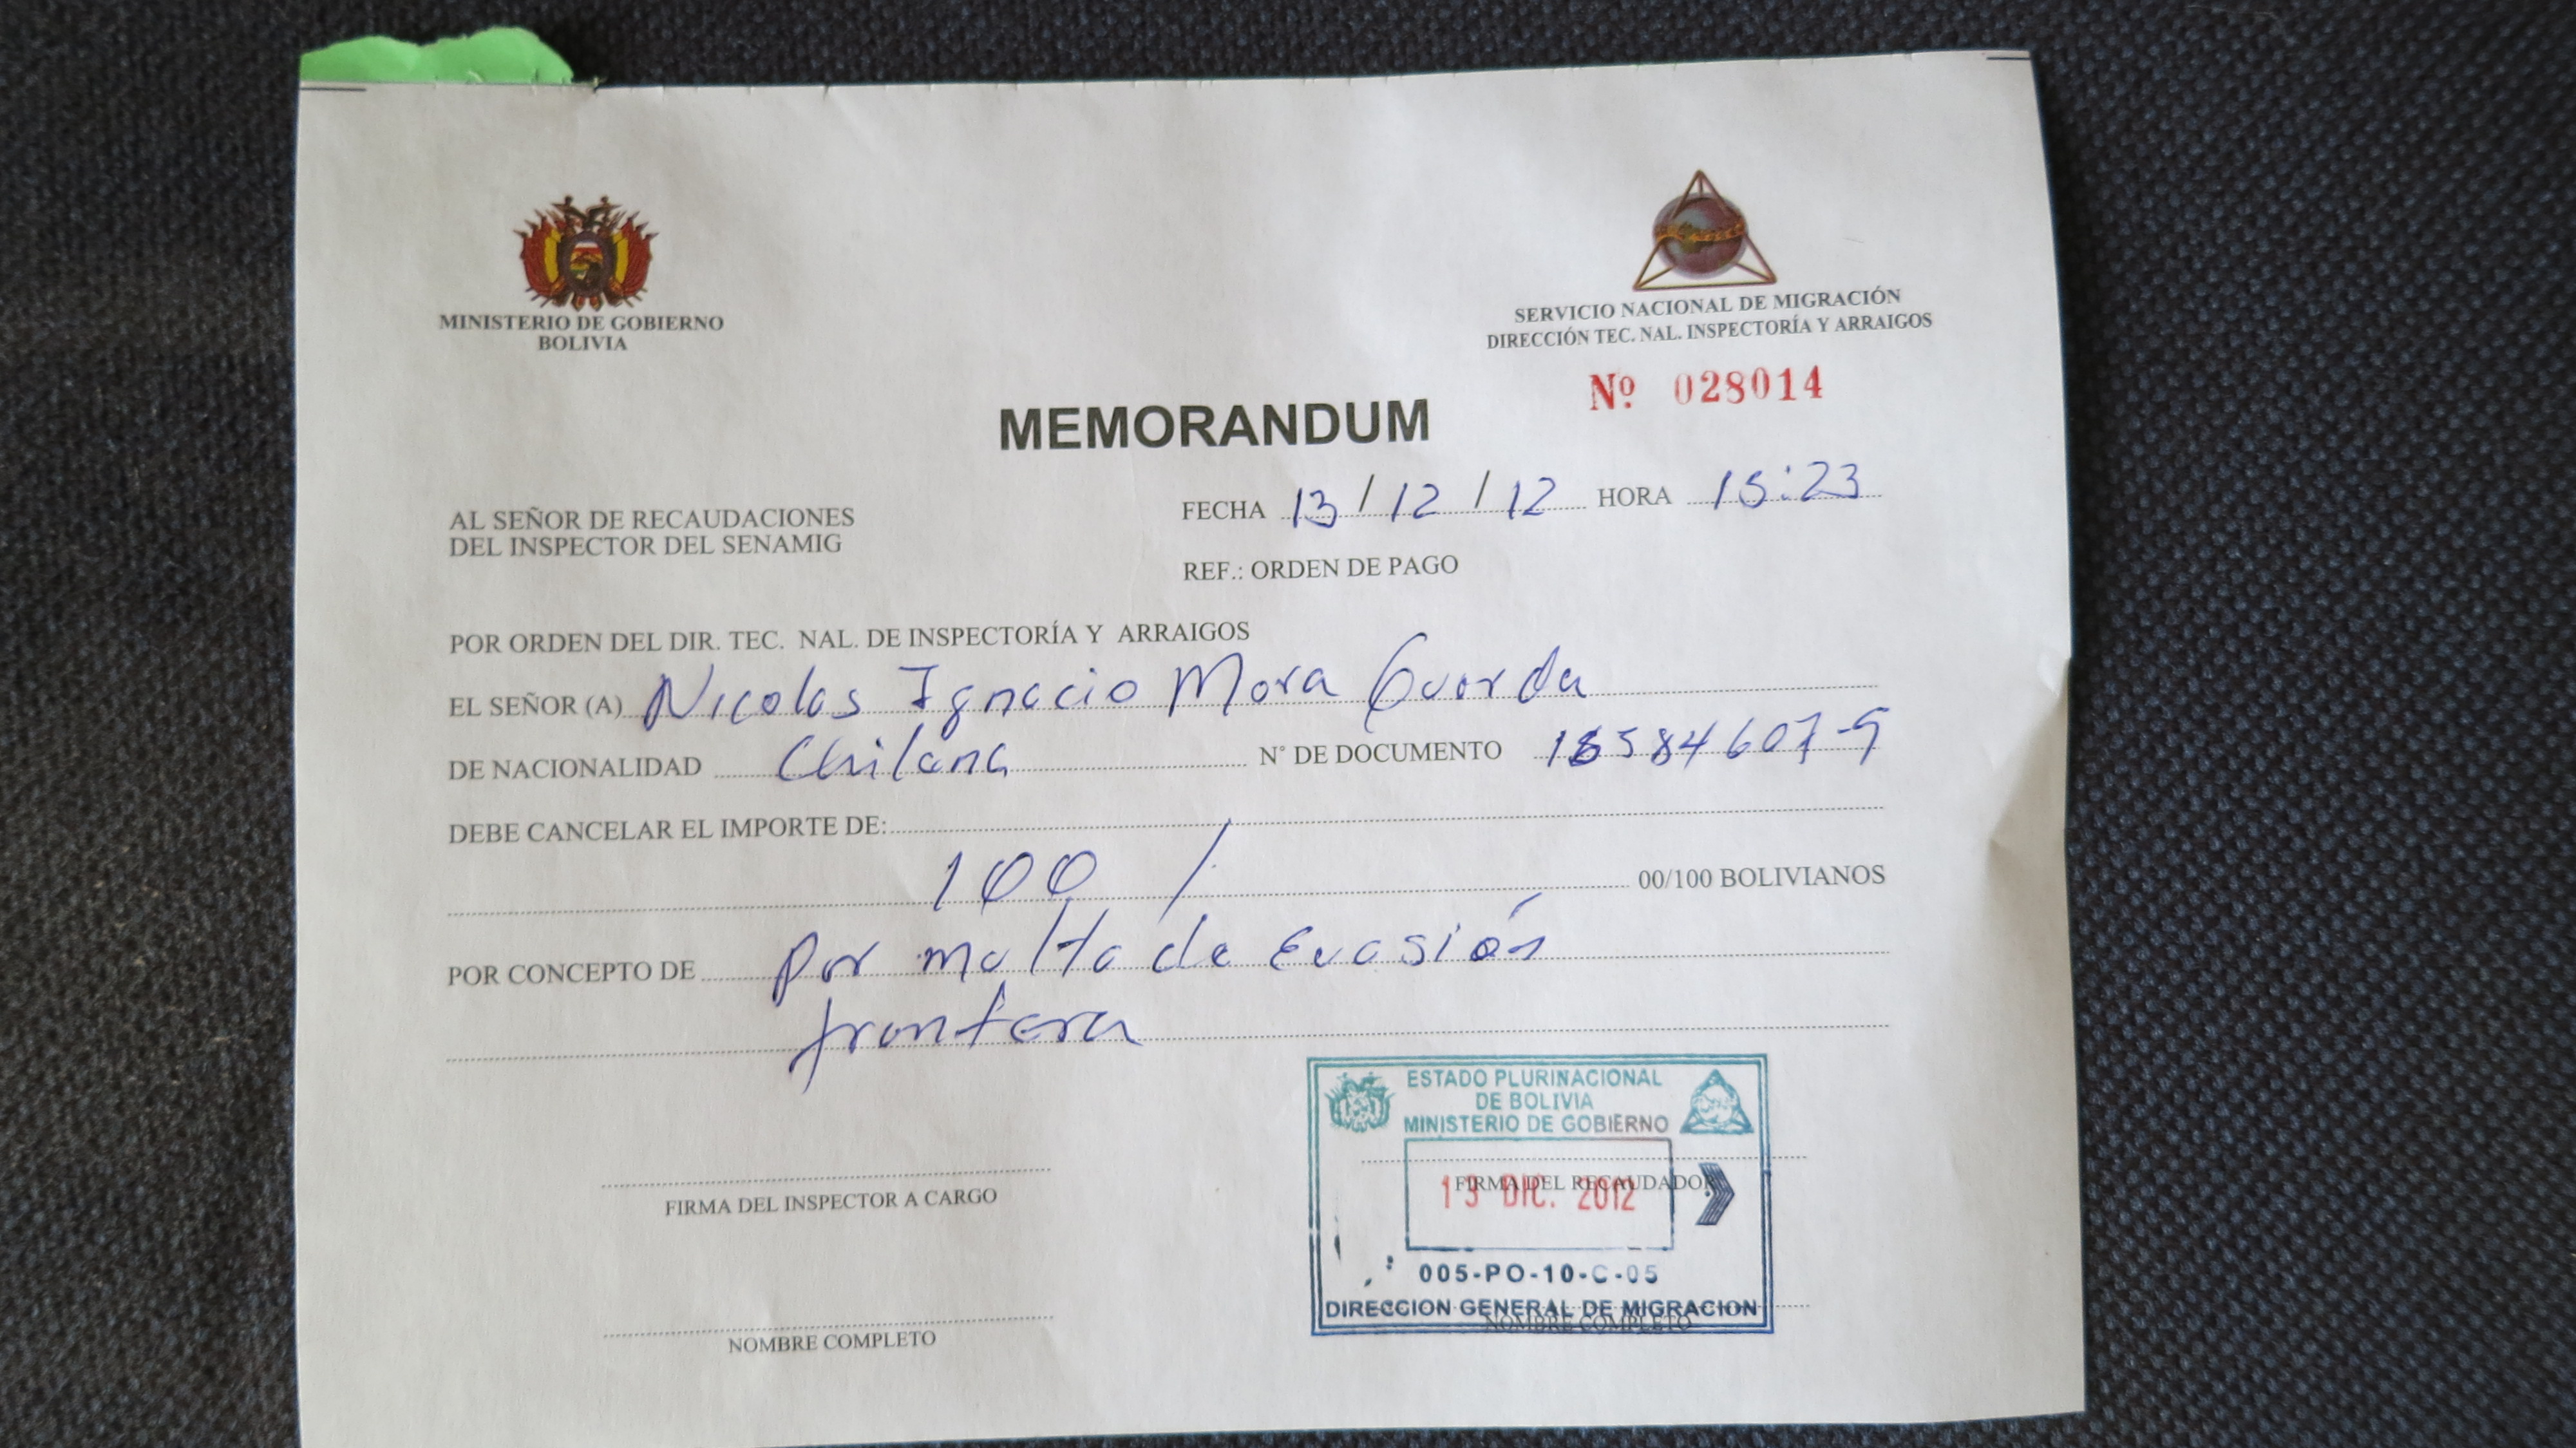 MINISTERIO DE GOBIERNO
BOLIVIA
SERVICIO NACIONAL DE MIGRACIÓN
DIRECCIÓN TEC. NAL. INSPECTORÍA Y ARRAIGOS
Nº 028014
MEMORANDUM
FECHA 13 / 12 / 12 HORA 15:23
AL SEÑOR DE RECAUDACIONES
DEL INSPECTOR DEL SENAMIG
REF.: ORDEN DE PAGO
POR ORDEN DEL DIR. TEC. NAL. DE INSPECTORÍA Y ARRAIGOS
EL SEÑOR (A) Nicolas Ignacio Mora
DE NACIONALIDAD Chilena N° DE DOCUMENTO
DEBE CANCELAR EL IMPORTE DE:
100 / 00/100 BOLIVIANOS
POR CONCEPTO DE Por multa de Evasión
frontera
ESTADO PLURINACIONAL
DE BOLIVIA
MINISTERIO DE GOBIERNO
FIRMA DEL INSPECTOR A CARGO
FIRMA DEL RECAUDADOR
DIC. 2012
005-PO-10-C-05
DIRECCION GENERAL DE MIGRACION
NOMBRE COMPLETO
NOMBRE COMPLETO